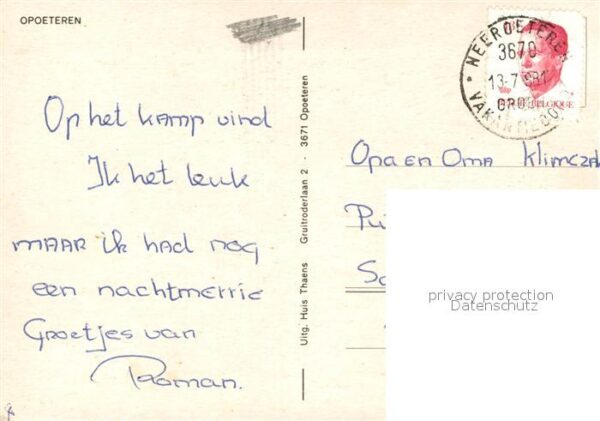 OPOETEREN
Op het kamp vind
Ik het leuk
MAAR ik had nog
een nachtmerrie
Groetjes van
Roman.
Uitg. Huis Thaens Gruitroderlaan 2 - 3671 Opoeteren
NEEROETEREN
3670
13-7 981
BELGIQUE
Opa en Oma Klimcza
privacy protection
Datenschutz